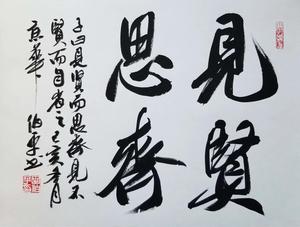 見賢
思齊
子曰見賢而思齊見不
賢而自省之己亥年月
京華